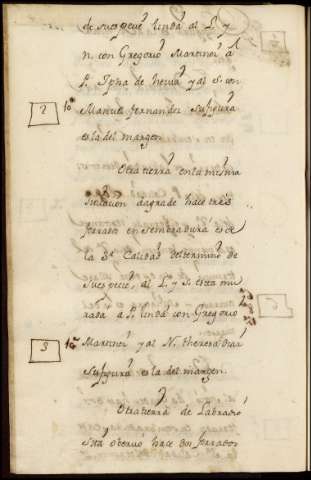 de su especie linda al L. y
n. con Gregorio Martinez a
P. Jpha de neira y al s. con
2 Manuel fernandez su figura
es la del margen.
Otra tierra en la misma
situacion da grade hace tres
ferrados en sembradura es de
la 3ª Calidad del termino de
su especie, al L. y s. esta mu
rada a P. linda con Gregorio
3 Martinez y al N. theresa Diaz
su figura es la del margen.
Otra tierra de Labradio
y hace dos ferrados